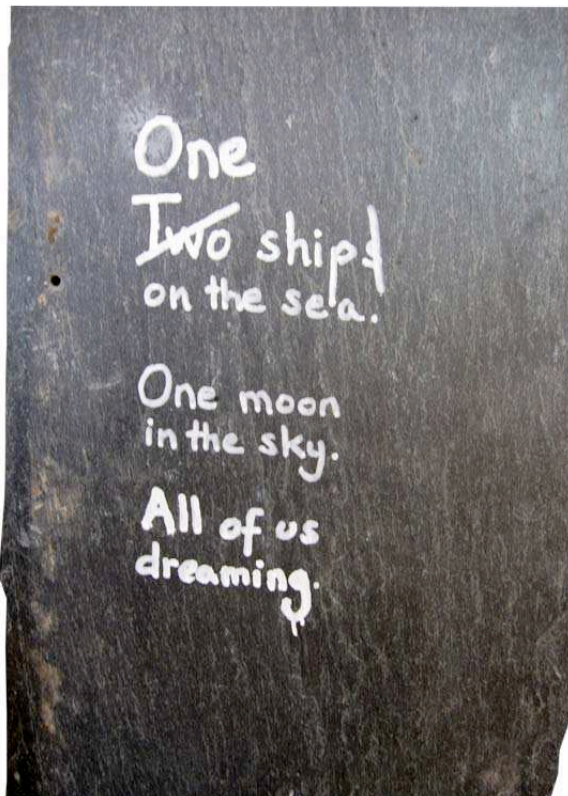 One
Two ships
on the sea.
One moon
in the sky.
All of us
dreaming.